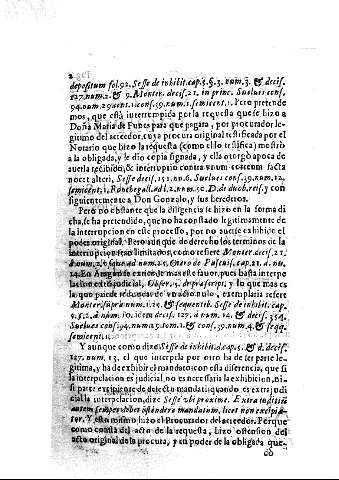 2
depositum fol.92. Sesse de inhibit. cap.5. §.3. num.3. & decis.
127. num.2. & 9. Monter. decis.21. in princ. Suelues cons.
94. num.29. cent.1. cons.39. num.1. semicent.1. Pero pretende
mos, que está interrumpida por la requesta que se hizo a
Doña Maria de Funes para que pagara, por procurador le-
gitimo del acreedor, cuya procura original testificada por el
Notario que hizo la requesta (como el lo testifica) mostrò
a la obligada, y le dio copia signada, y ella otorgò apoca de
auerla recibido, & interruptio contra unum coreum facta
nocet alteri, Sesse decis.151. nu.6. Suelues cons.39. num.12.
semicent,1, Ronchegall. adl.2. num.50. D. de duob. reis, y con
siguientemente a Don Gonzalo, y sus herederos.
Pero no obstante que la diligencia se hizo en la forma di
cha, se ha pretendido, que no ha constado legitimamente de
la interrupcion en este processo, por no auerse exhibido el
poder original. Pero aunque de derecho los terminos de la
interrupcion sean limitados, como refiere Monter. decis.21.
à num.2. usque ad num.
14. En Aragon se extiende mas este fauor, pues basta interpe
lacion extrajudicial, Obser.5. de præscript. y lo que mas es
la que puede redarguirse de vicio nulo, exemplariza refiere
Monter. supra num.12. & sequentib. Sesse de inhibit. cap.
9. §.2. à num.10. idem decis.127. à num.14. & decis.354.
Suelues cons.94. num.29. cent.1. & cons.39. num.4. & seqq.
semicent.1.
Y aunque como dize Sesse de inhibit. d. cap.5. & d. decis.
127. num. 13, el que interpela por otro ha de ser parte le-
gitima, y ha de exhibir el mandato con esta diferencia, que si
la interpelacion es judicial, no es necessaria la exhibicion, ni
si parte excipiente de defecto mandati; quando es extrajudi
cial la interpelacion, dize Sesse vbi proxime. Extra iuditiũ
autem semper debet ostendere mandatum, licet non excipia-
tur. Y esto mismo hizo el Procurador del acreedor. Porque
como consta del acto de la requesta, hizo ostension del
acto original de la procura, y en poder de la obligada que-
dò